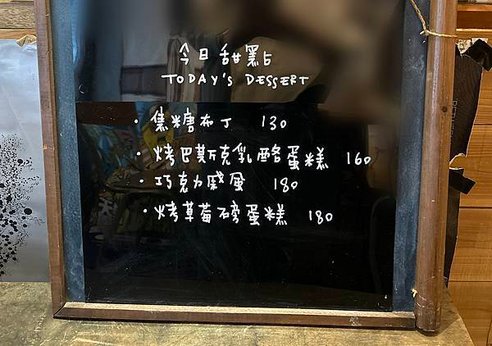 今日甜點
TODAY'S DESSERT
・焦糖布丁 130
・烤巴斯克乳酪蛋糕 160
・巧克力戚風 180
・烤草莓磅蛋糕 180